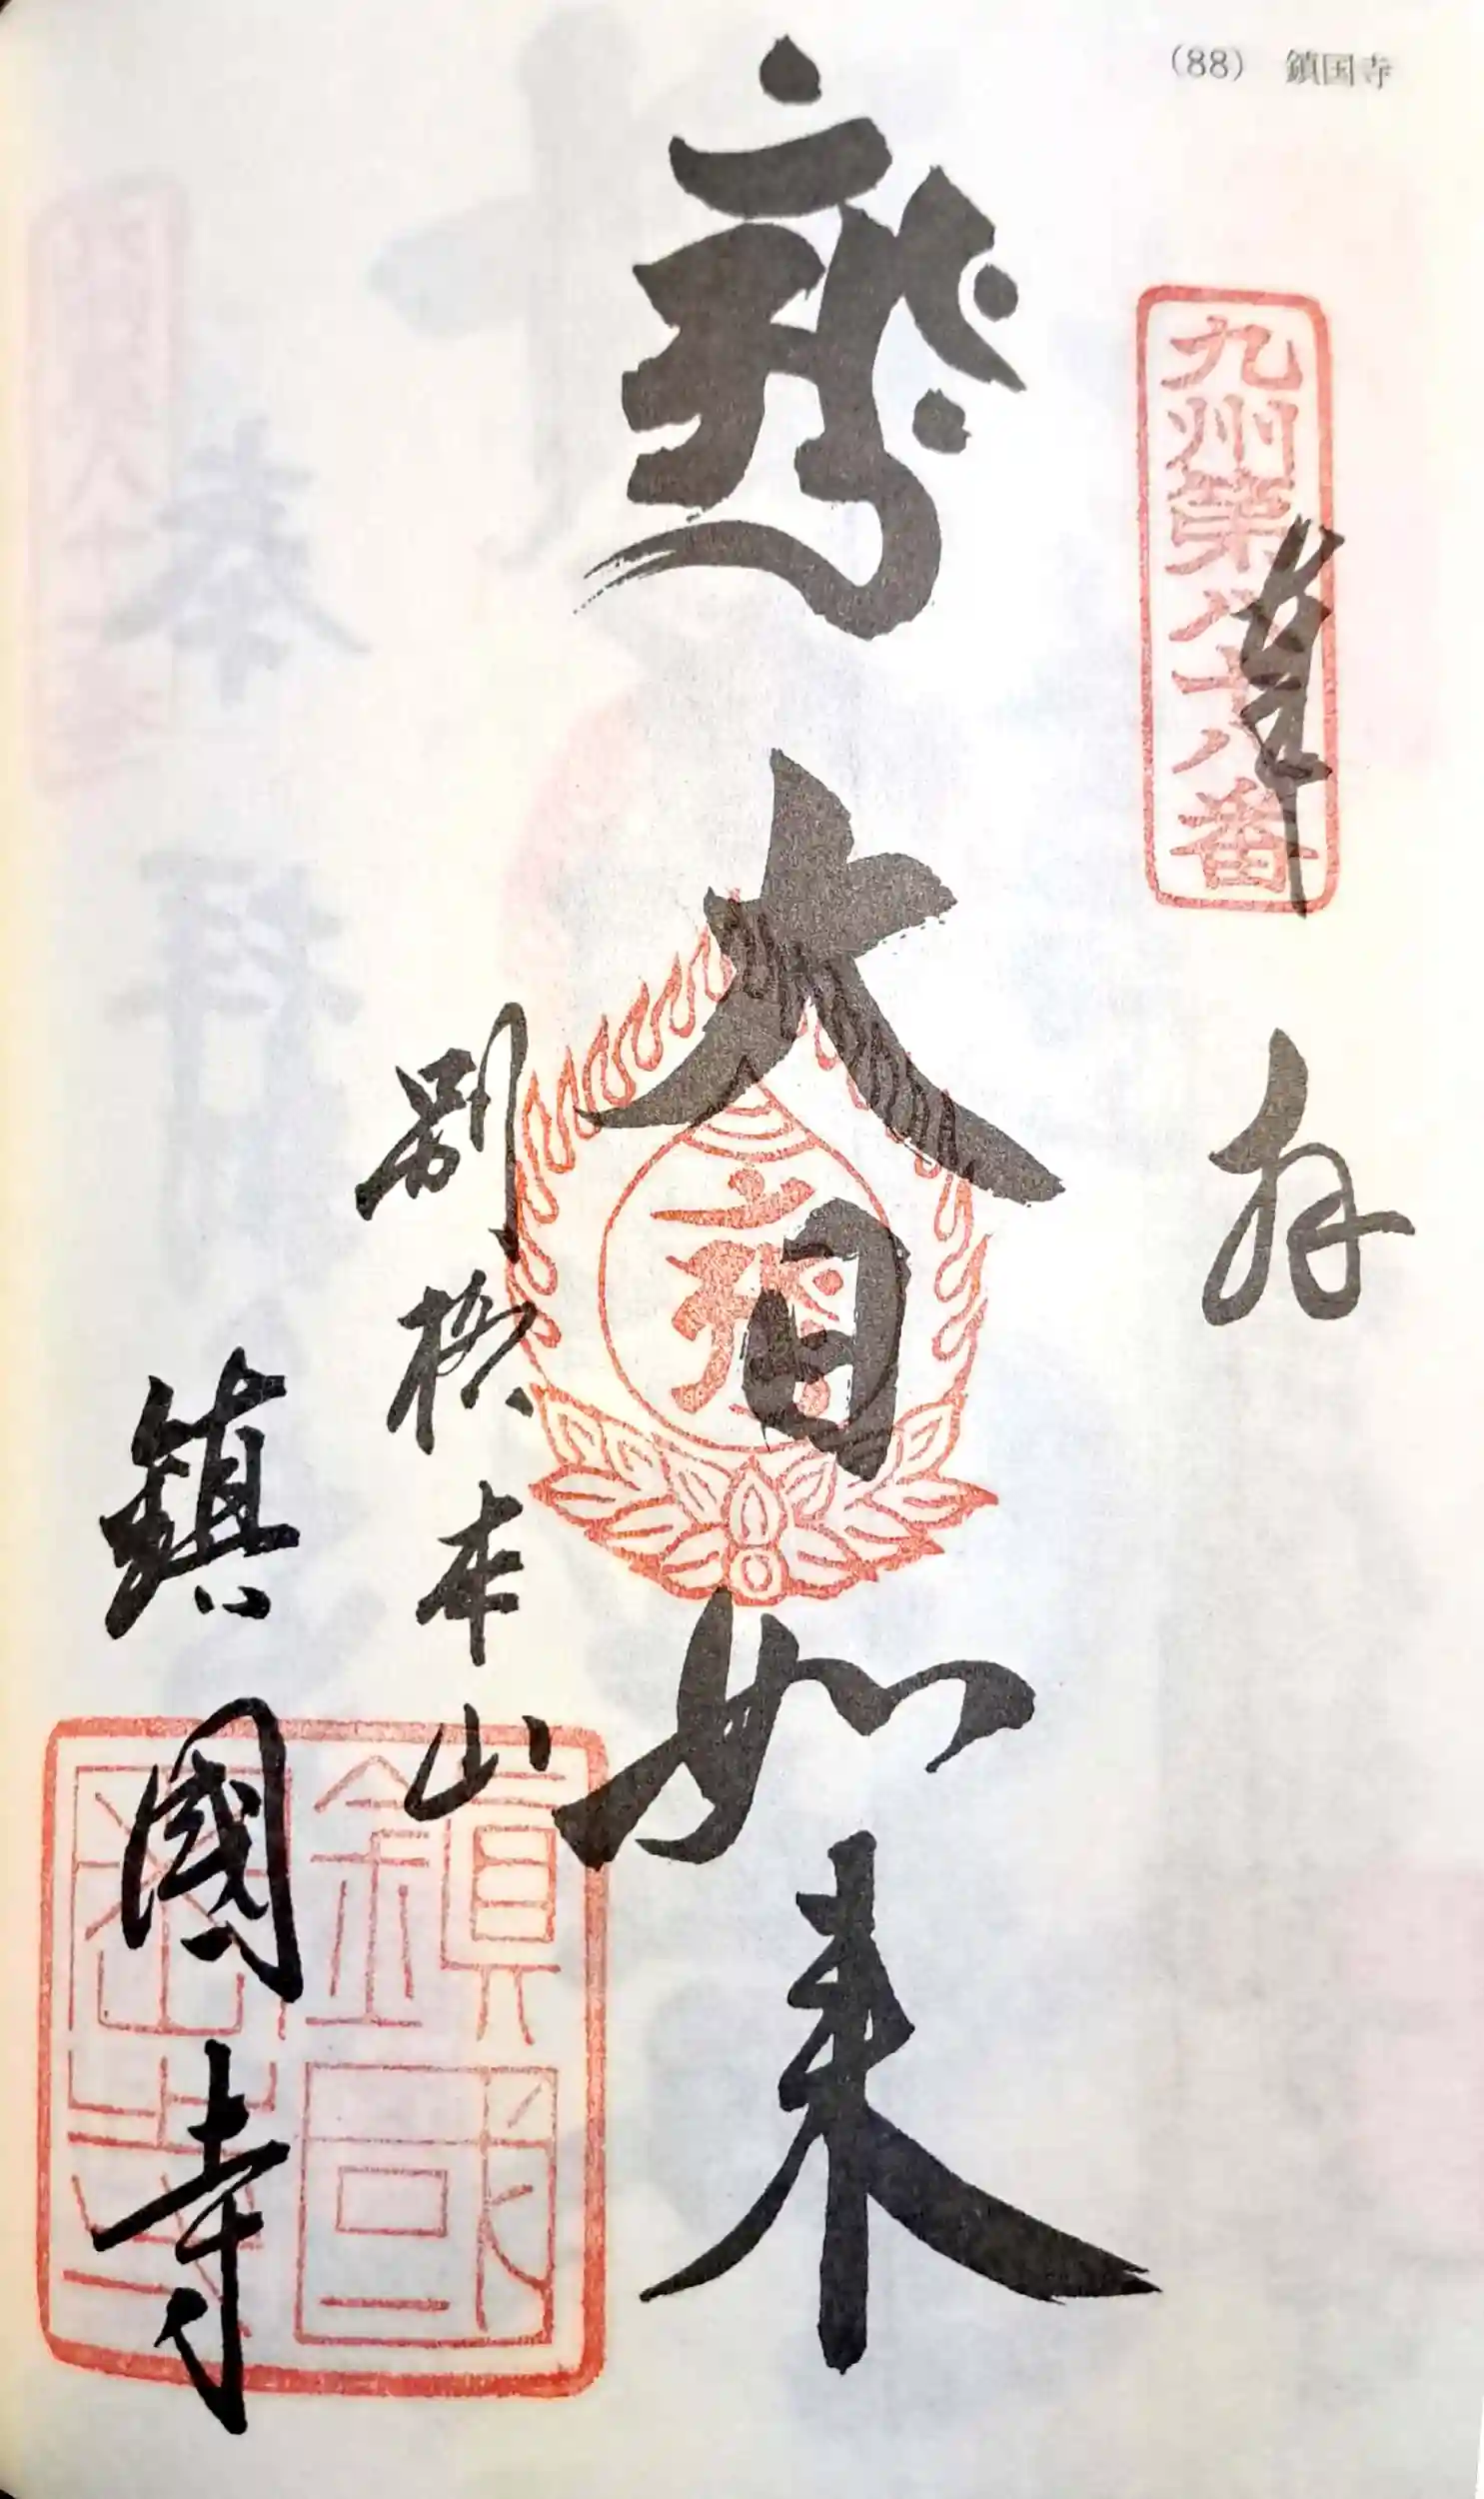 (88) 鎮国寺
九州第八十八番
奉拝
大日如来
別格本山
鎮國寺
鎮国密寺